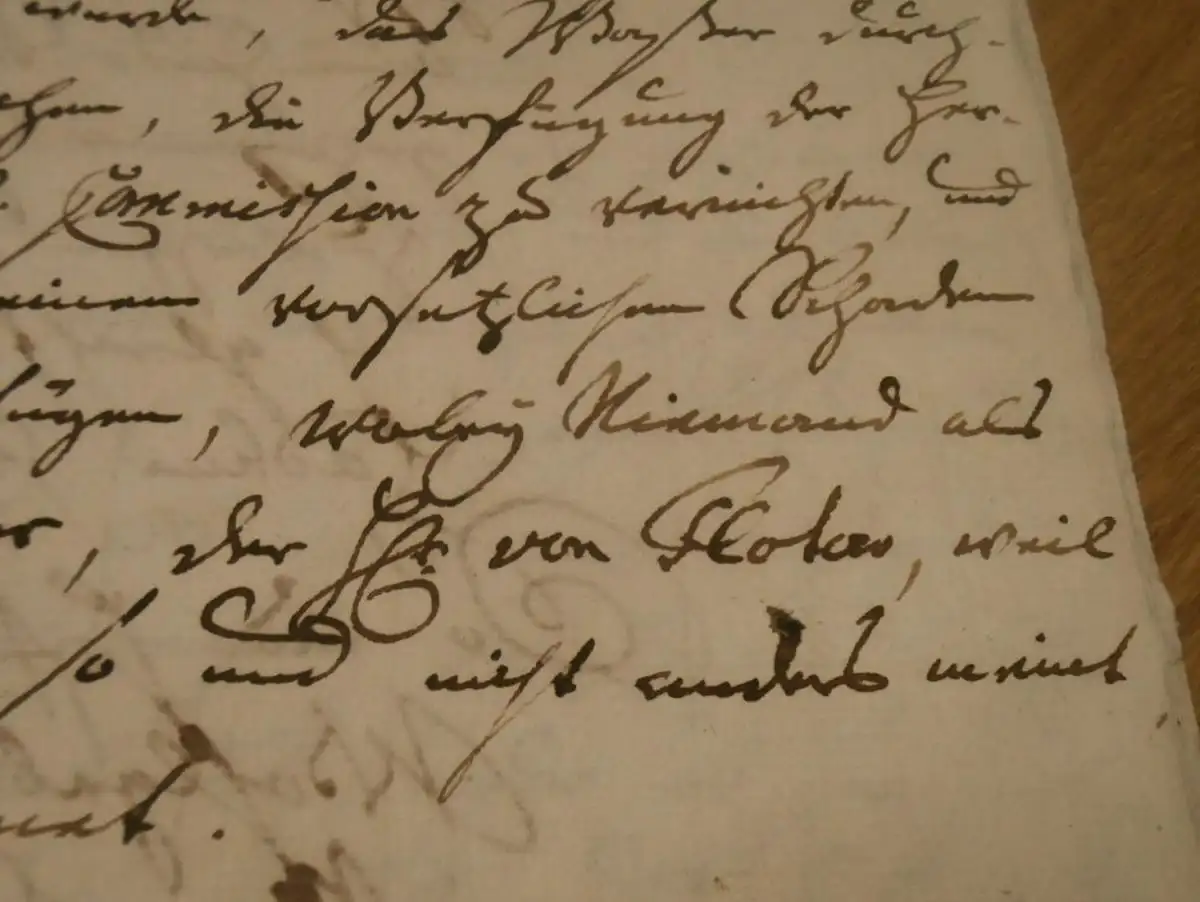 wurde, das Waßer durch-
chen, die Verfügung der Her-
Commission zu vernichten, und
einen vorsetzlichen Schaden
fügen, Niemand als
er, der H. von Flotow, weil
so und nicht anders meint